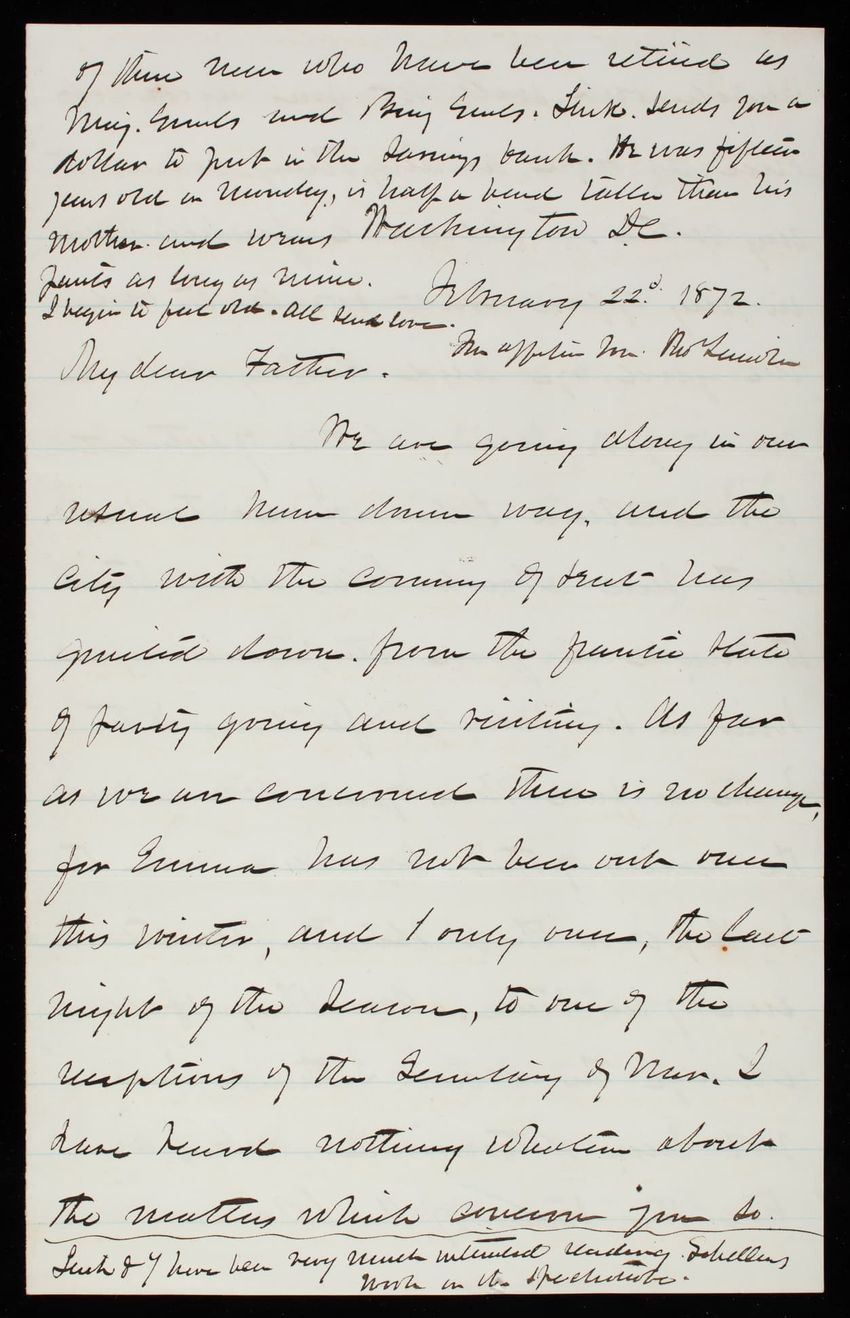 of three men who have been retired as
Maj. Genls and Brig Genls. Link. sends you a
dollar to put in the Savings bank. He was fifteen
years old on Monday, is half a head taller than his
mother. and wears
pants as long as mine.
I begin to feel old. All send love.
Washington D.C.
February 22d. 1872.
My dear Father.
We are going along in our
usual hum drum way. and the
City with the coming of Lent has
quieted down. from the frantic state
of party going and visiting. As far
as we are concerned there is no change,
for Emma has not been out once
this winter, and I only once, the last
night of the Season, to one of the
receptions of the Secretary of War. I
have heard nothing whatever about
the matters which concern you so.
Link & I have been very much interested reading Schellens
work on the Spectroscope.